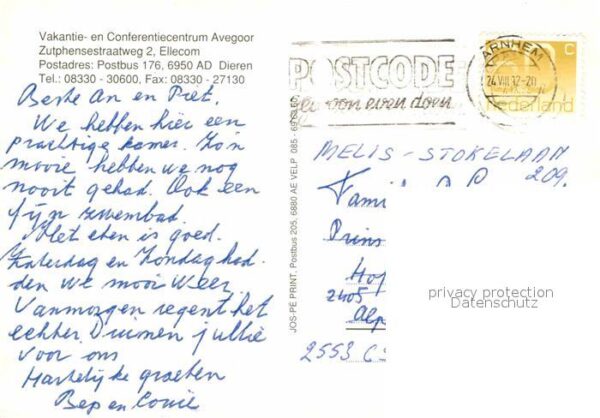 Vakantie- en Conferentiecentrum Avegoor
Zutphensestraatweg 2, Ellecom
Postadres: Postbus 176, 6950 AD Dieren
Tel.: 08330 - 30600, Fax: 08330 - 27130
Beste An en Piet.
We hebben hier een
prachtige kamer. Zo'n
mooie hebben we nog
nooit gehad. Ook een
fijn zwembad.
Het eten is goed.
Zaterdag en Zondag had
den we mooi weer.
Vanmorgen regent het
echter. Duimen jullie
voor ons
Hartelijke groeten
Bep en
JOS-PE PRINT, Postbus 205, 6880 AE VELP, 085 -
POSTCODE
even doen
ARNHEM
C
nederland
MELIS - STOKELAAN
209.
Fami
Prins
Hof
2405
Alp
2553 C
privacy protection
Datenschutz